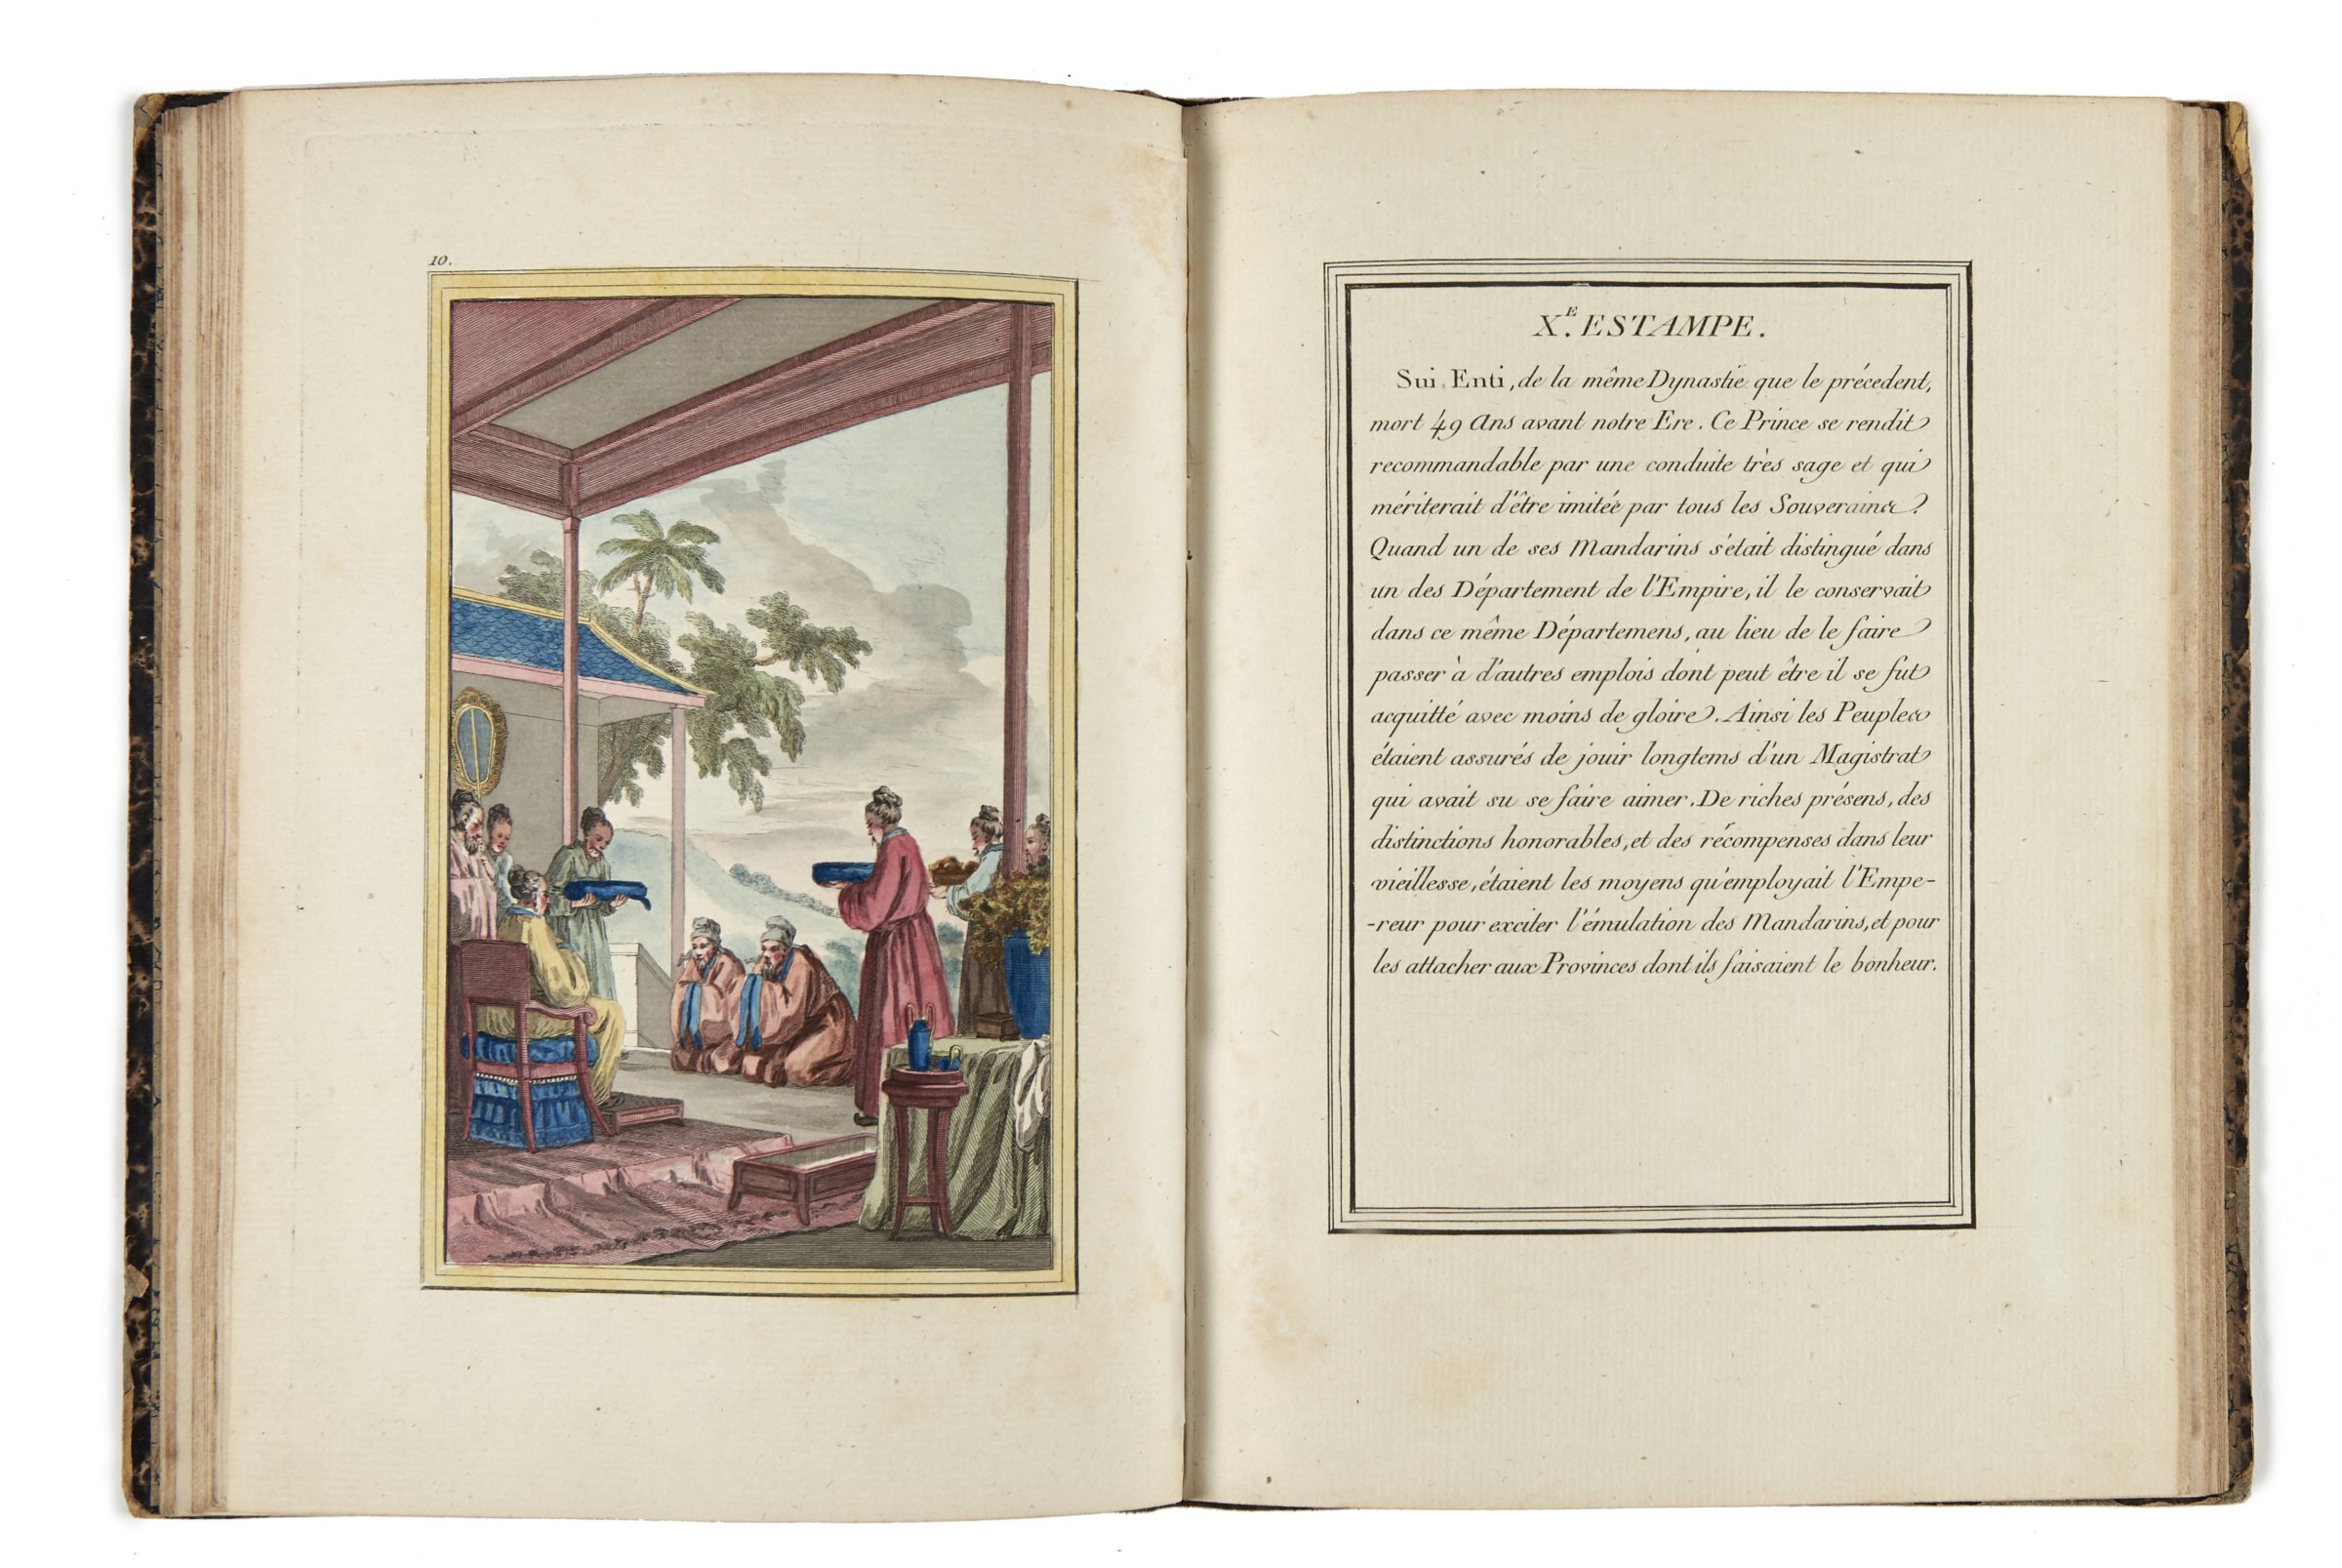 10.
X.E ESTAMPE.
Sui Enti, de la même Dynastie que le précedent,
mort 49 Ans avant notre Ere. Ce Prince se rendit
recommandable par une conduite très sage et qui
mériterait d'être imitée par tous les Souverains.
Quand un de ses Mandarins s'etait distingué dans
un des Département de l'Empire, il le conservait
dans ce même Départemens, au lieu de le faire
passer à d'autres emplois dont peut être il se fut
acquitté avec moins de gloire. Ainsi les Peuples
étaient assurés de jouir longtems d'un Magistrat
qui avait su se faire aimer. De riches présens, des
distinctions honorables, et des récompenses dans leur
vieillesse, étaient les moyens qu'employait l'Empe-
-reur pour exciter l'émulation des Mandarins, et pour
les attacher aux Provinces dont ils faisaient le bonheur.